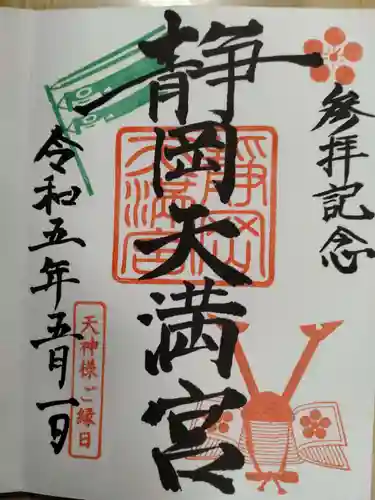 参拝記念
静岡天満宮
静岡天満宮
令和五年五月一日
天神様ご縁日